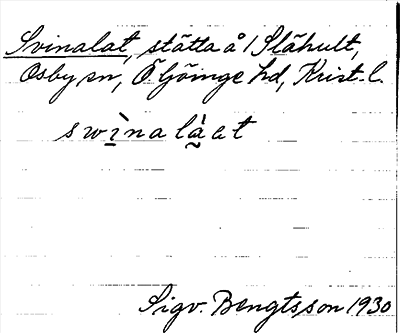 Svinalat, stätta å 1 Slähult,
Osby sn, Ö. Göinge hd, Krist. l.
swìnalàet
Sigv. Bengtsson 1930